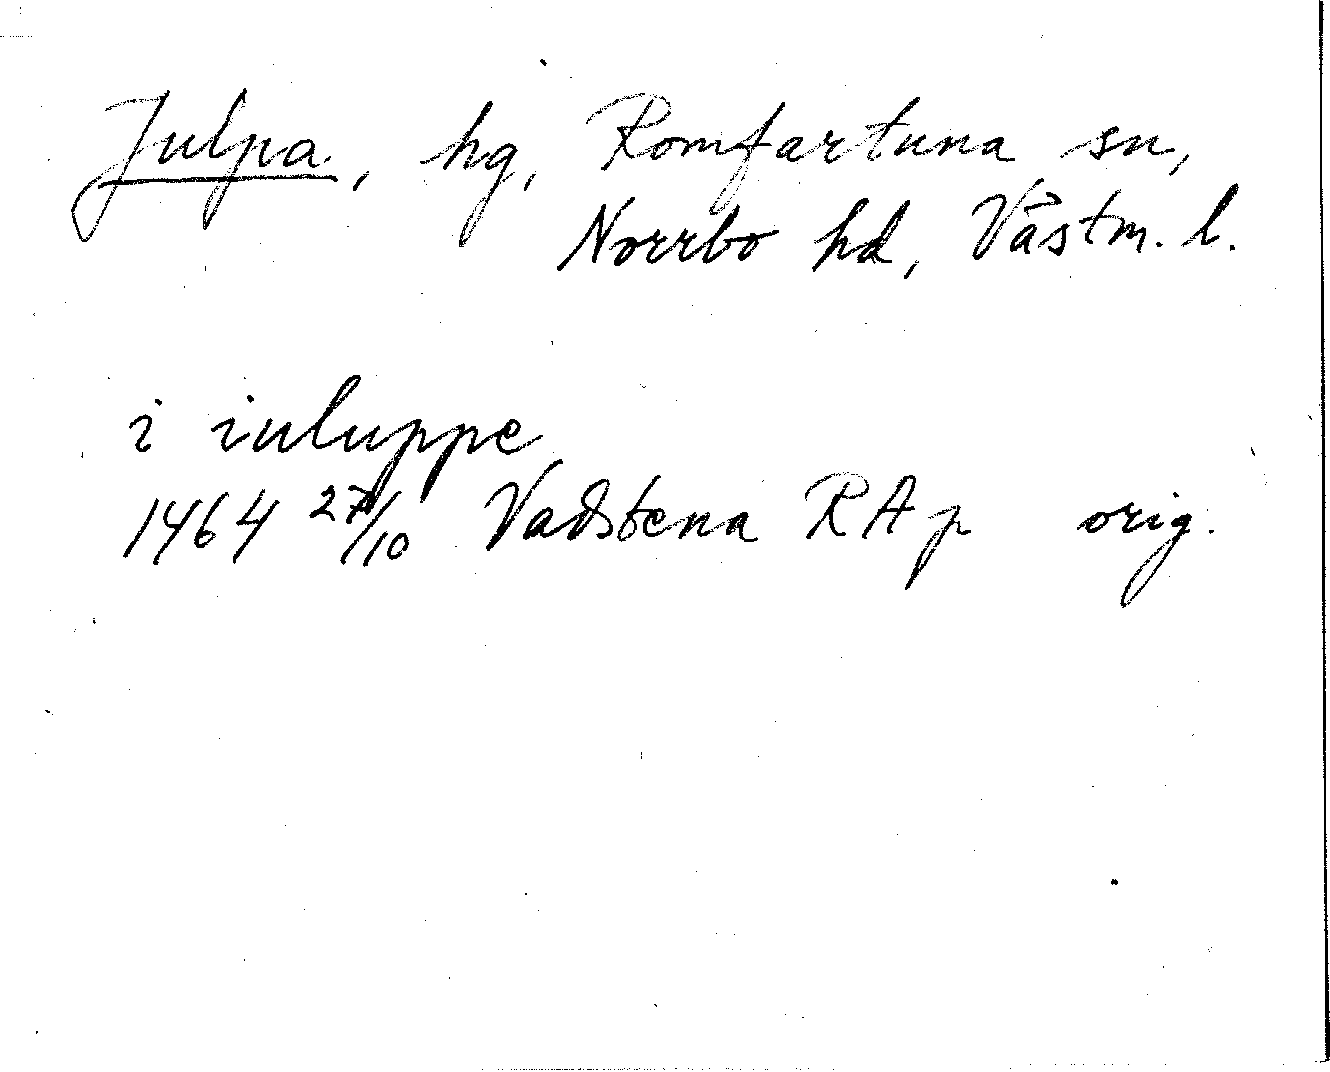 Julpa, hg, Romfartuna sn,
Norrbo hd, Västm. l.
i iuluppe
1464 27/10 Vadstena RAp orig.